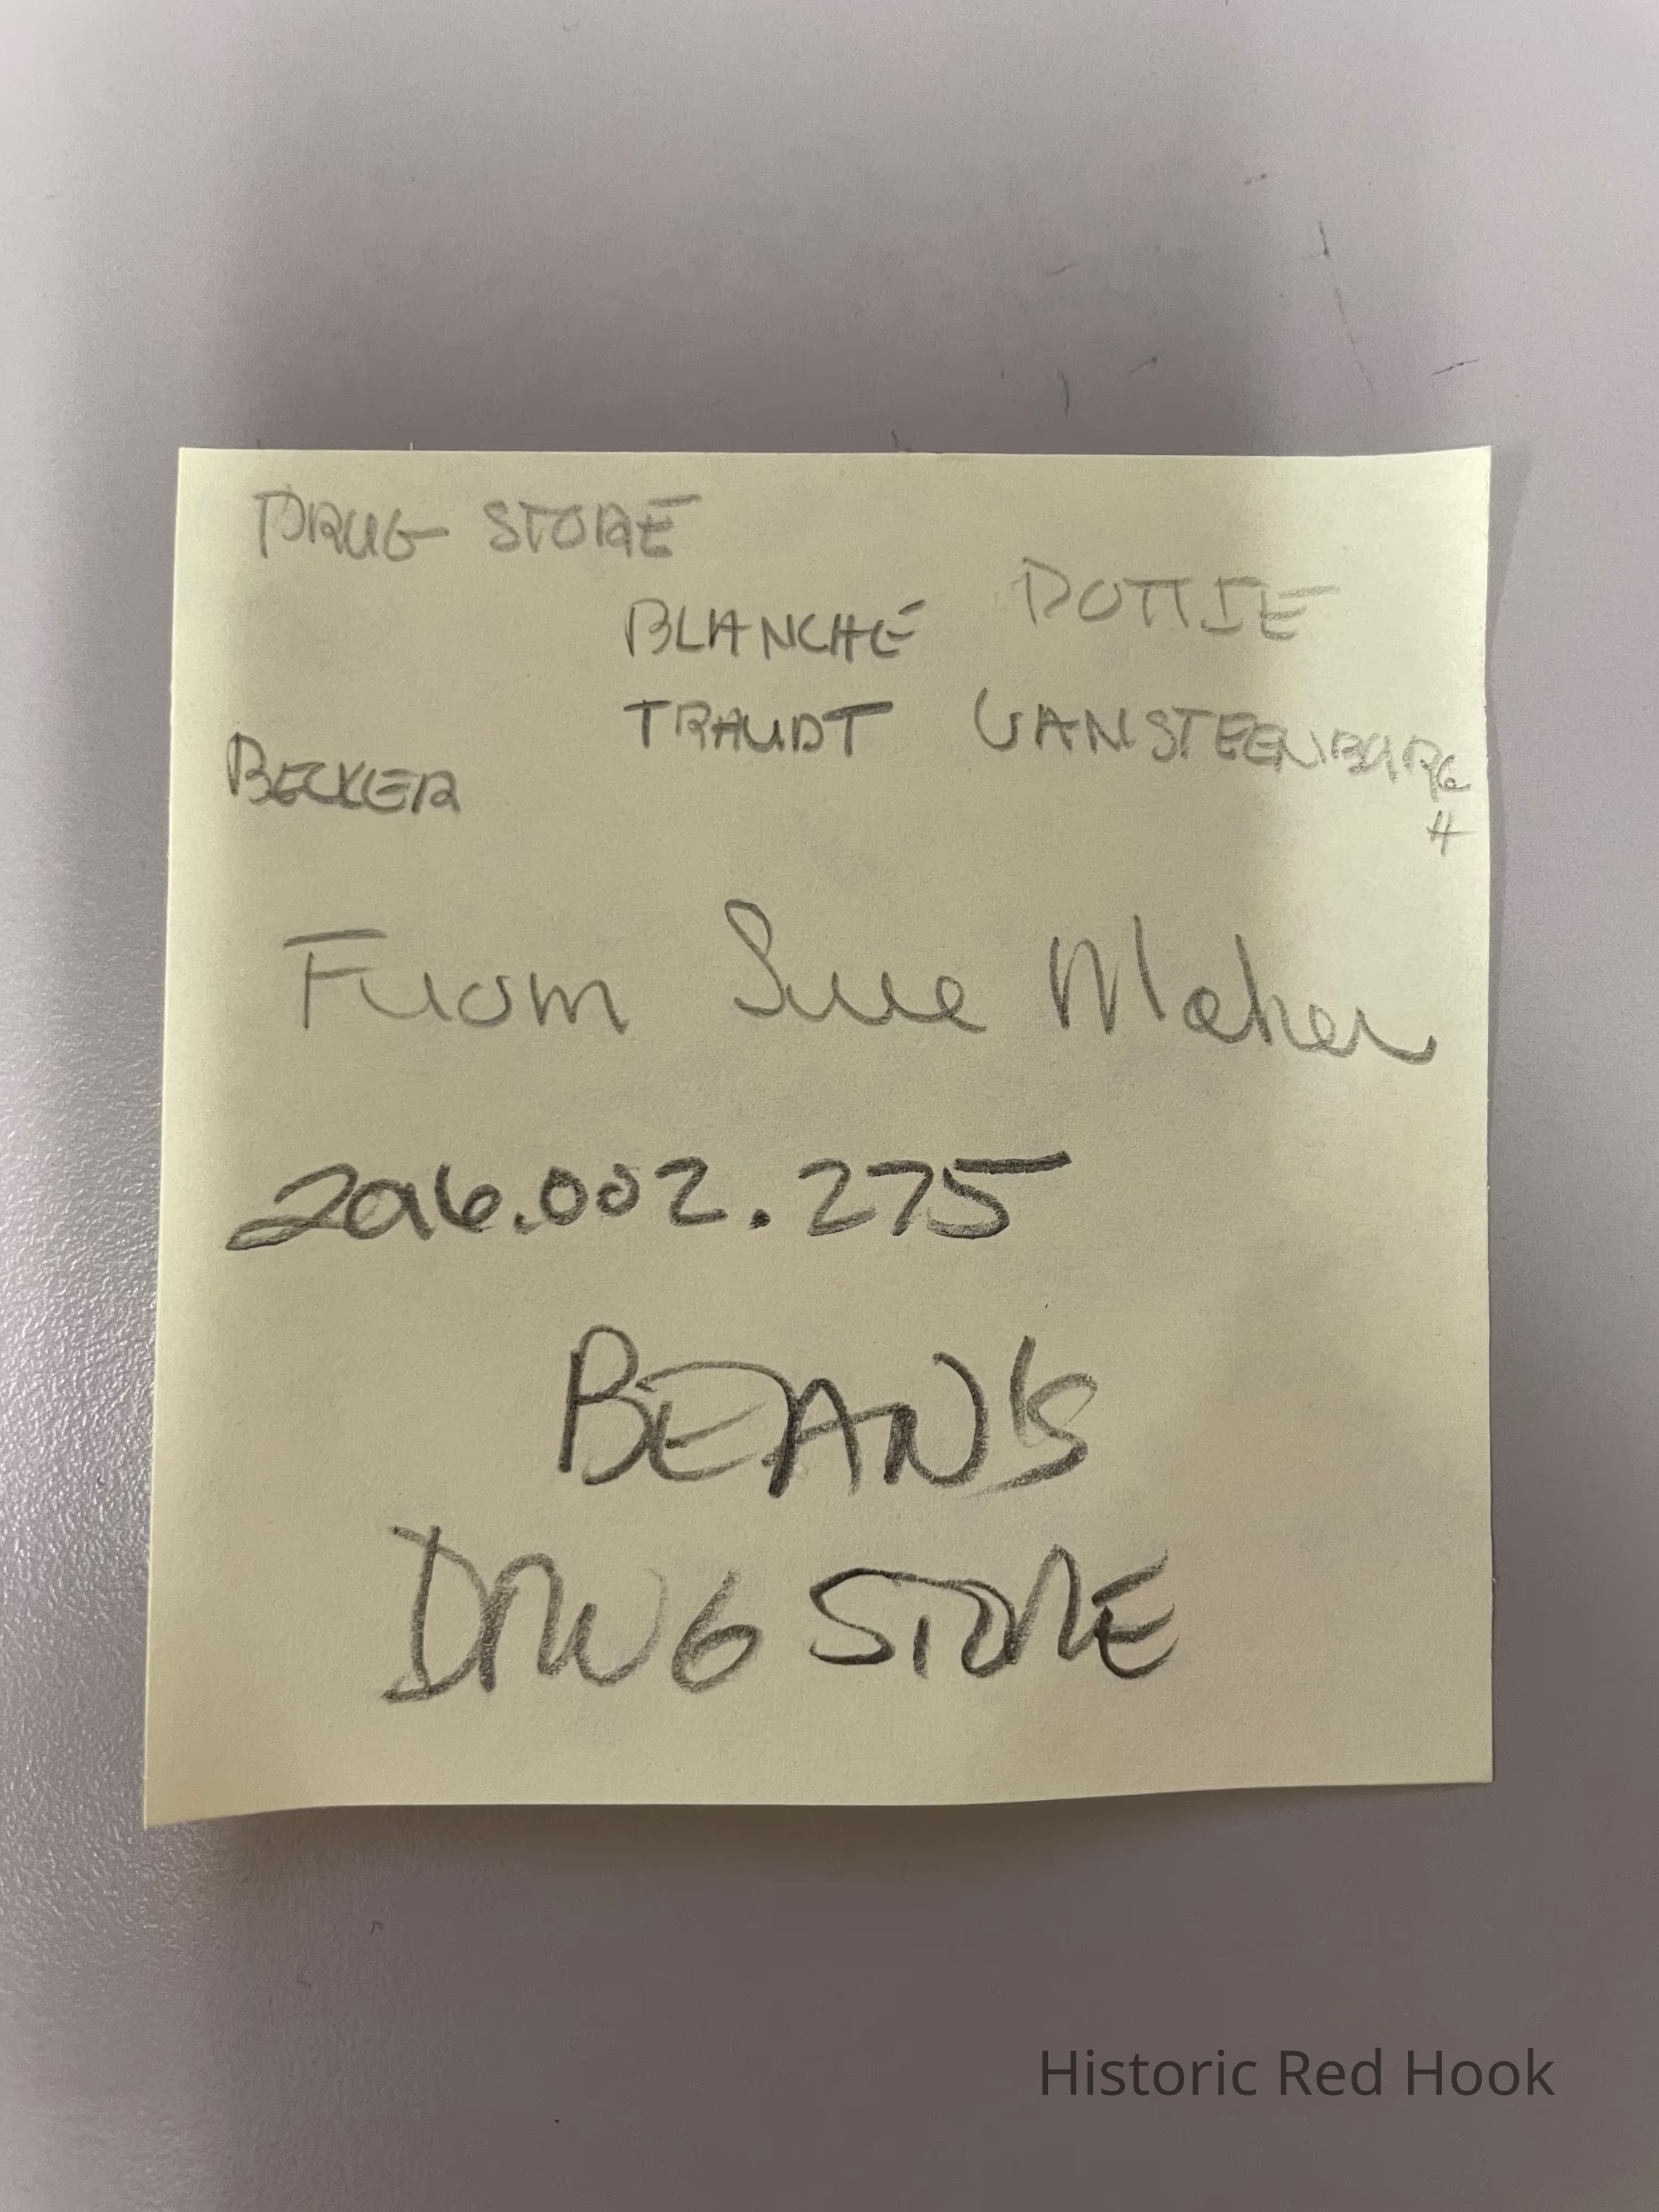 DRUG STORE
BLANCHE DOTTIE
TRAUDT VANSTEENBURG
H
BECKER
From Sue Maher
2016.002.275
BEAN'S
DRUG STORE
Historic Red Hook